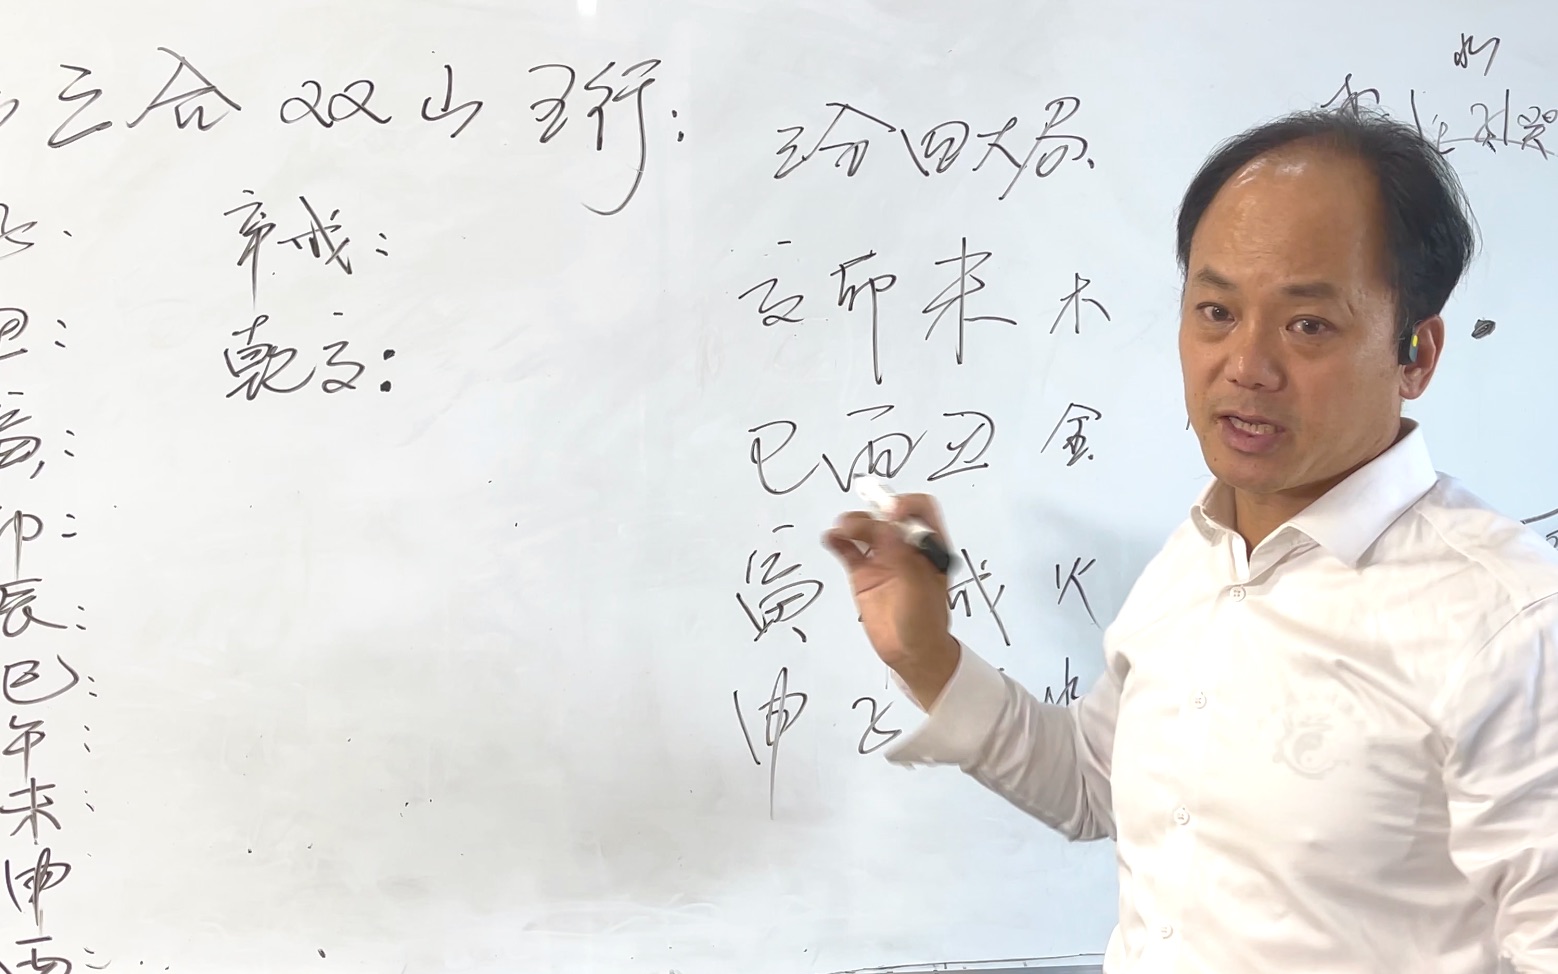 三合双山五行：
辛戌：
乾亥：
丑：
寅：
卯：
辰：
巳：
午：
未：
申
酉：
三合四大局
亥卯未 木
巳酉丑 金
寅 戌 火
申 子 水
水